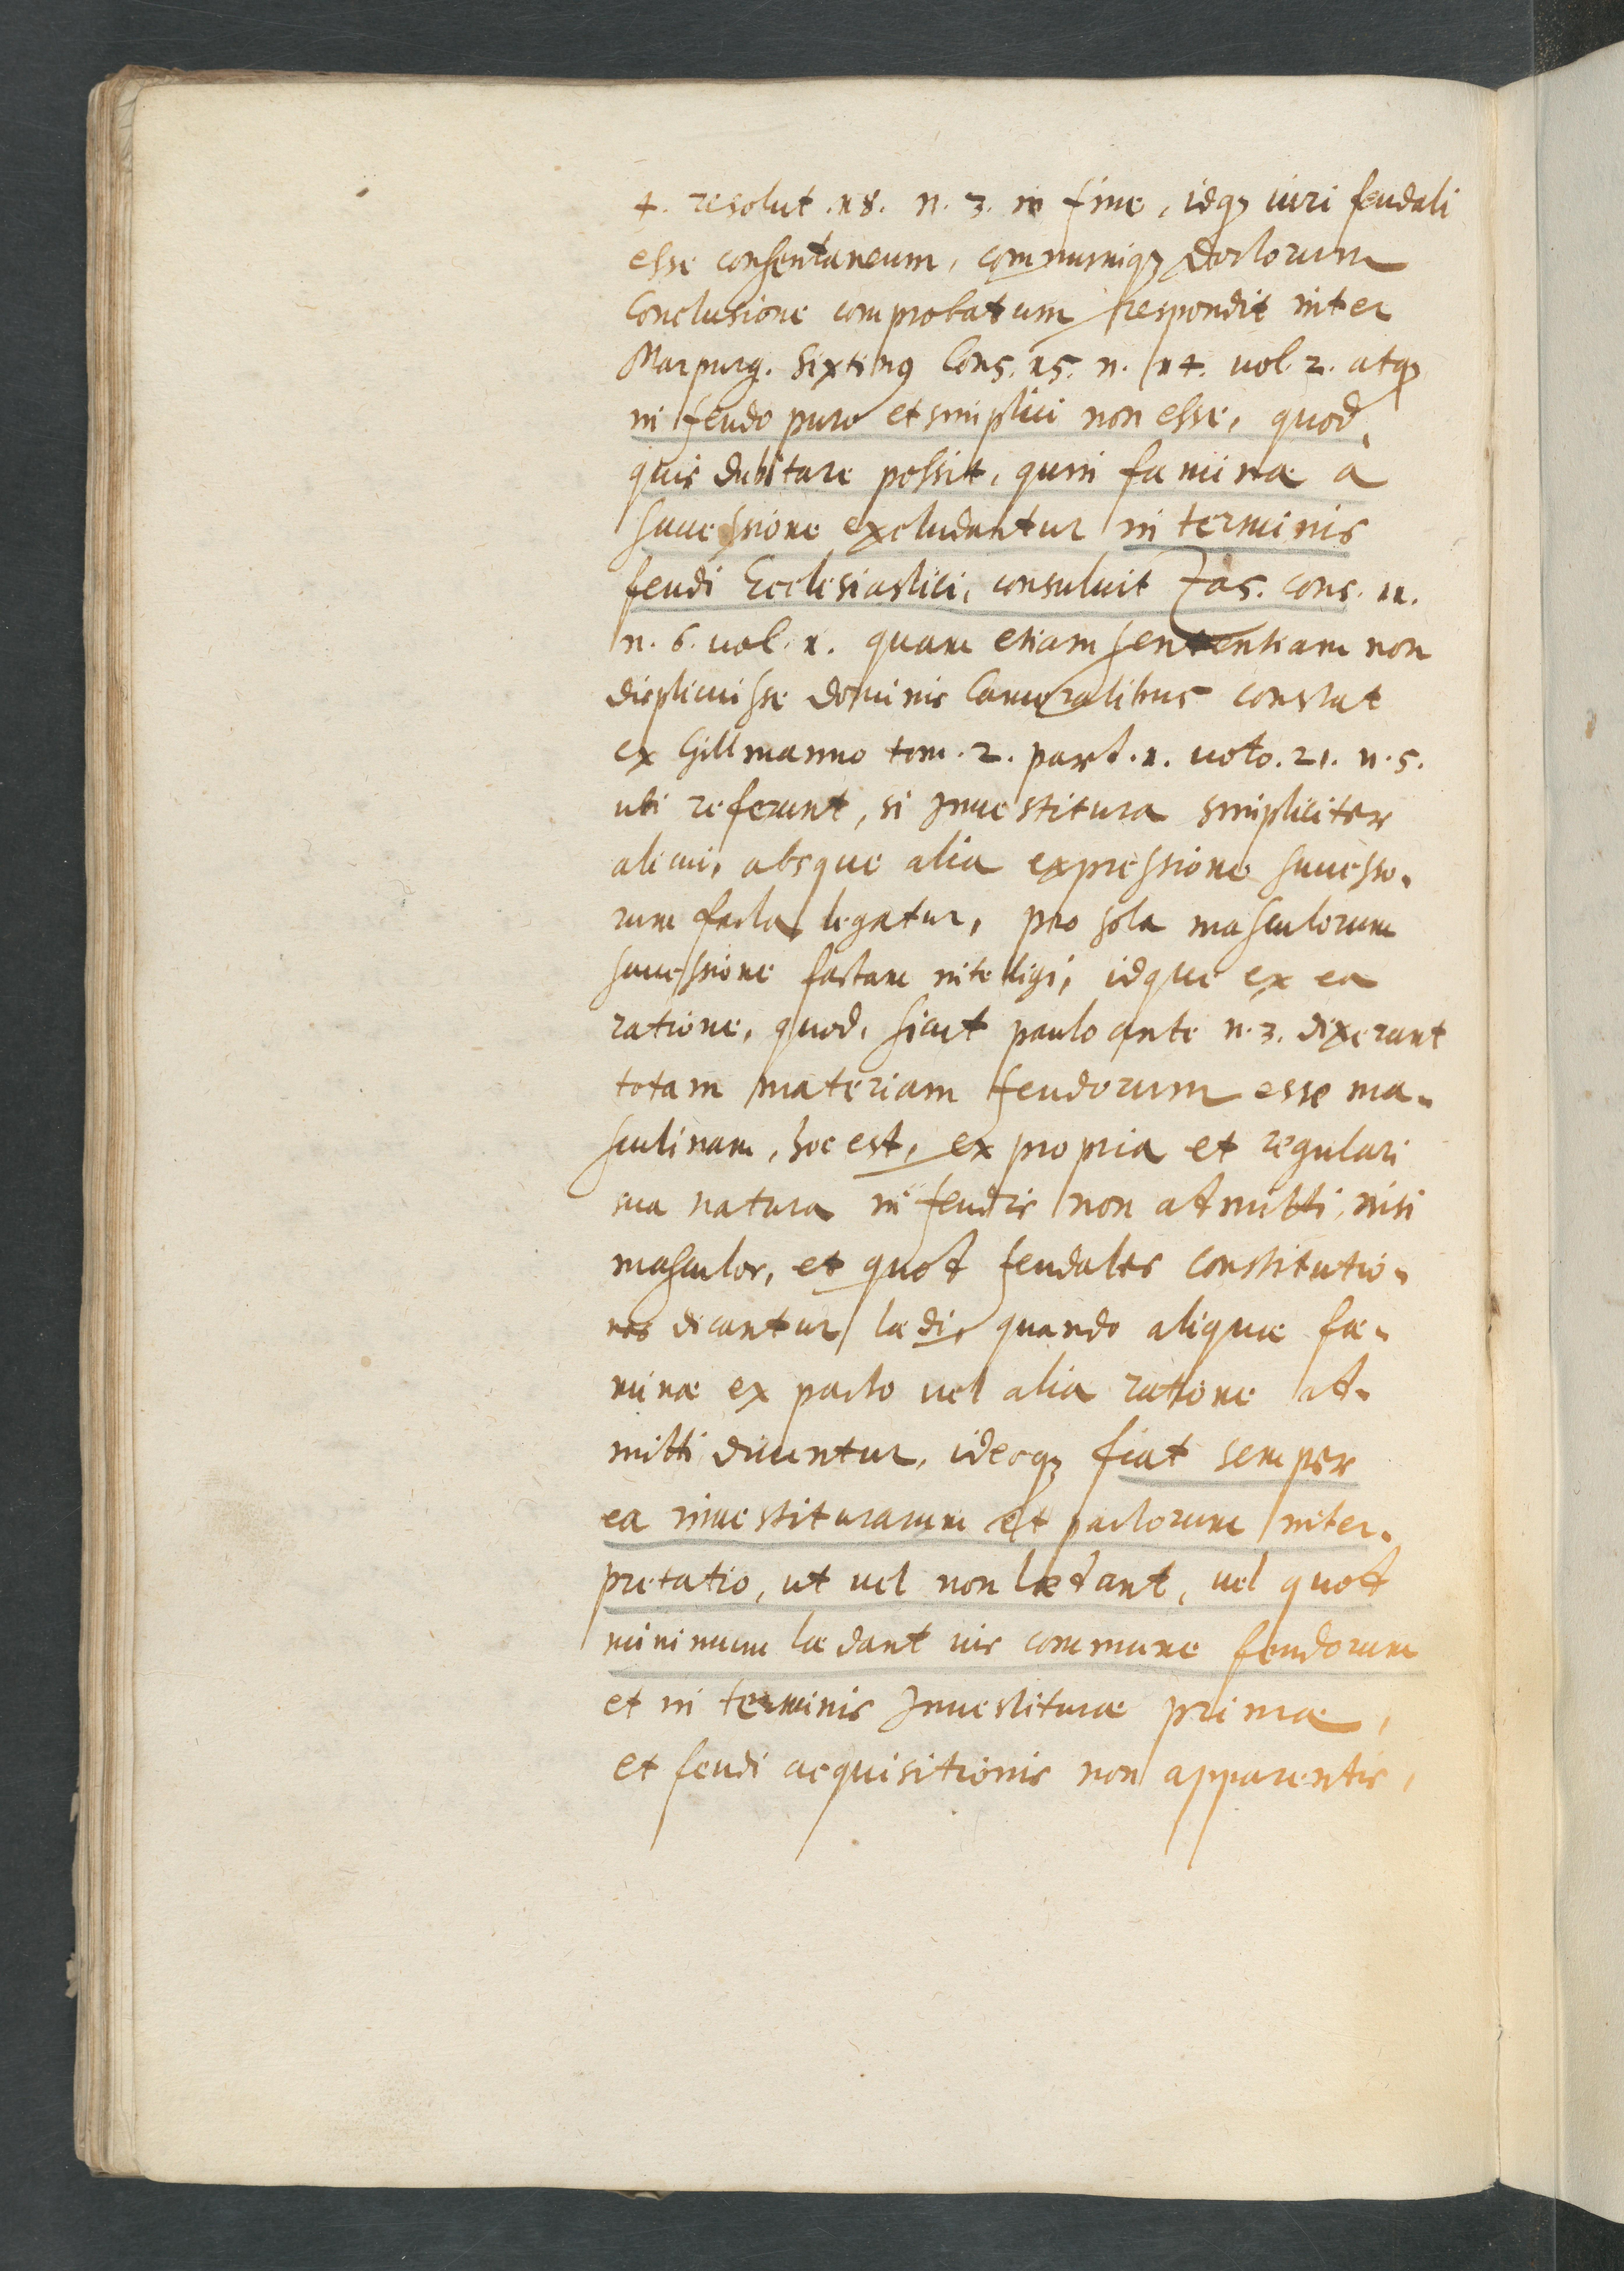 4. resolut. 18. n. 3. in fine, idq₃ iuri feudali
esse consentaneum, communiq₃ Doctorum
Conclusione comprobatum respondit inter
Marpurg. Sixtinꝰ Cons. 15. n. 14. vol. 2. atq₃
in feudo puro et simplici non esse, quod
quis dubitare possit, quin fæminæ à
successione excludantur in terminis
feudi Ecclesiastici, consuluit Zas. cons. 11.
n. 6. vol. 1. quam etiam sententiam non
displicuisse dominis Cameralibus constat
ex Gillmanno tom. 2. part. 1. voto. 21. n. 5.
ubi referunt, si Investitura simpliciter
alicui, absque alia expressione successo-
rum facta legatur, pro sola masculorum
successione factam intelligi, idque ex ea
ratione, quod, sicut paulo ante n. 3. dixerant
totam materiam feudorum esse ma-
sculinam, hoc est, ex propria et regulari
sua natura in feudis non admitti, nisi
masculos, et quod feudales constitutio-
nes dicantur lædi, quando aliquæ fæ-
minæ ex pacto vel alia ratione ad-
mitti dicuntur, ideoq₃ fiat semper
ea investiturarum et pactorum inter-
pretatio, ut vel non lædant, vel quod
minimum lædant ius commune feudorum
et in terminis Investituræ primæ,
et feudi acquisitionis non apparentis,